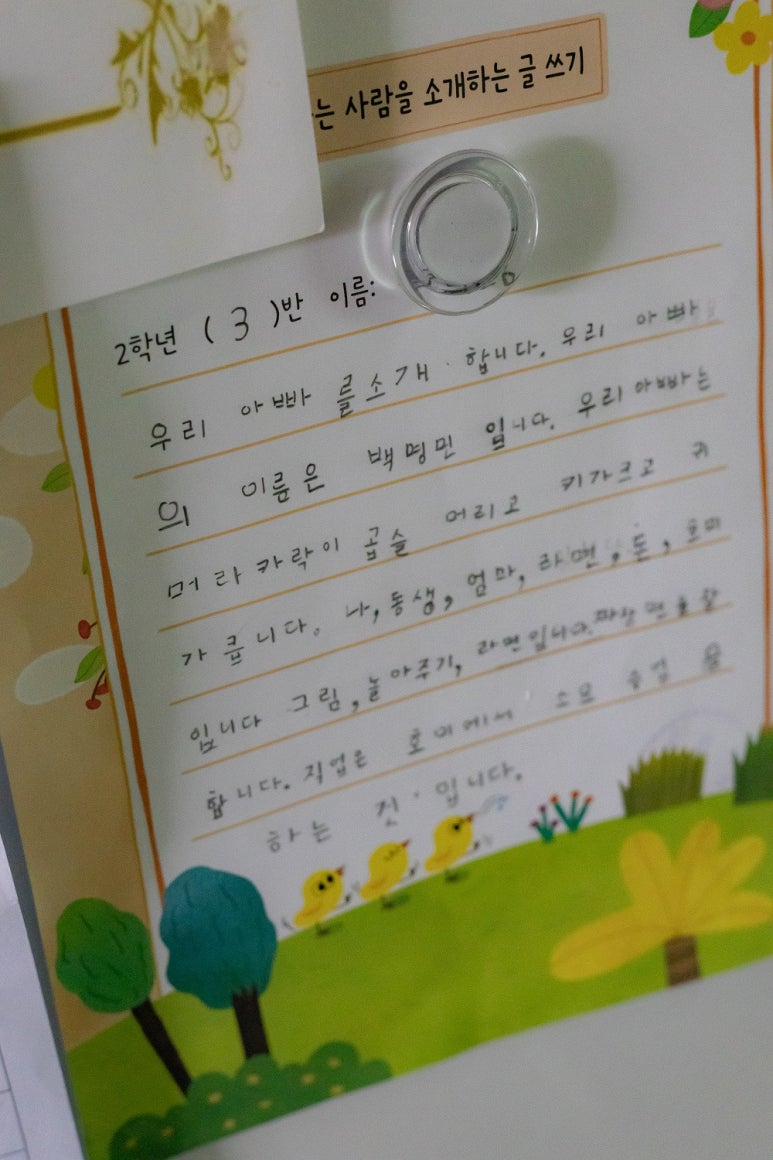 는 사람을 소개하는 글 쓰기
2학년 ( 3 )반 이름:
우리 아빠 를소개 합니다. 우리 아빠
의 이름은 백명민 입니다. 우리아빠는
머 라카락이 곱슬 머리고 키가크고 귀
가 큽니다. 나,동생, 엄마, 라면, 돈,
입니다 그림,놀아주기, 라면입니다.짜장면을 잘
합니다. 직업은
하는 것 입니다.